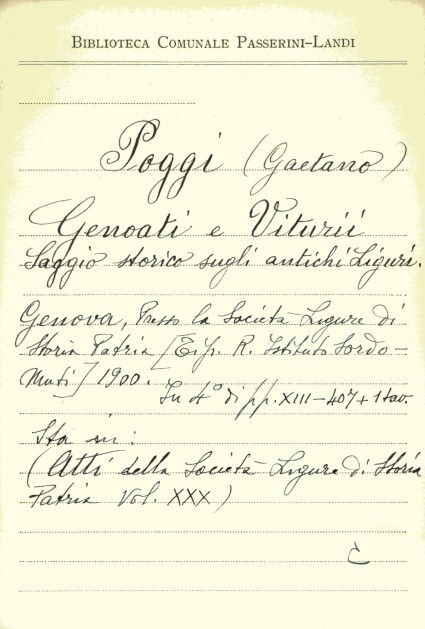 BIBLIOTECA COMUNALE PASSERINI-LANDI
Poggi (Gaetano)
Genoati e Viturii
Saggio storico sugli antichi Liguri.
Genova, Presso la Società Ligure di
Storia Patria [Tip. R. Istituto Sordo-
Muti] 1900.
In 4° di pp. XIII-407+1 tav.
Sta in:
(Atti della Società Ligure di Storia
Patria Vol. XXX)